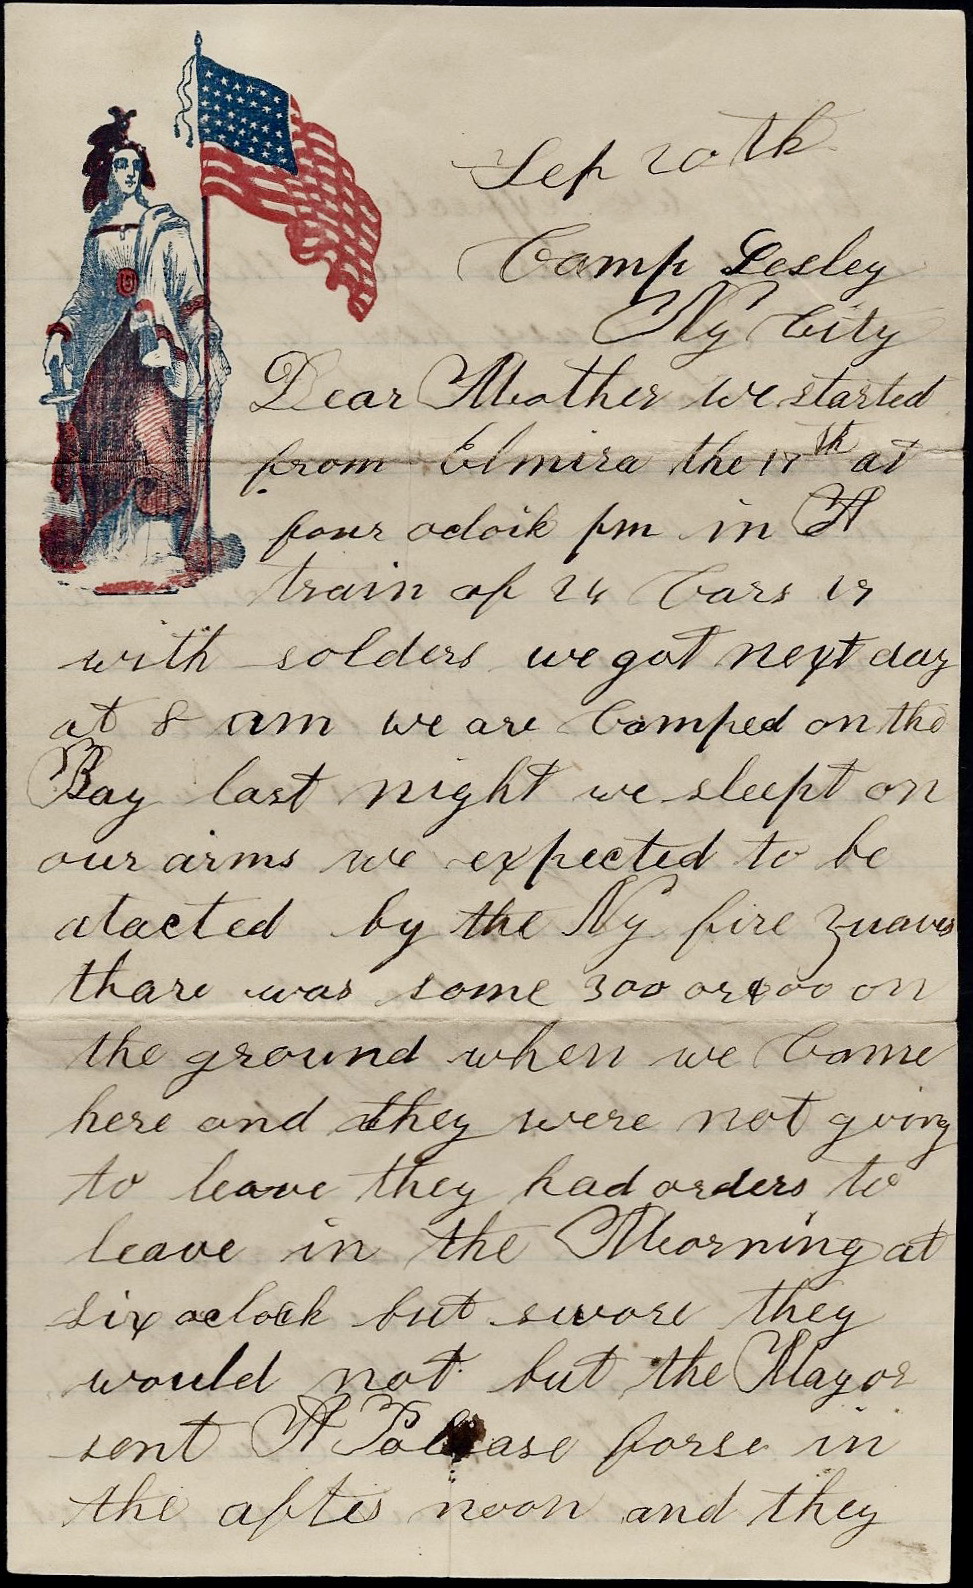 Sep 20 th
Camp Lesley
Ny City
Dear Mother we started
from Elmira the 17th at
four ocloik pm in A
train of 24 Cars 17
with solders we got next day
at 8 am we are Camped on the
Bay last night we sleept on
our arms we expected to be
atacted by the Ny fire zuaves
thare was some 300 or 400 on
the ground when we Came
here and they were not going
to leave they had orders to
leave in the Morning at
six oclock but swore they
would not but the Mayor
sent A Polease forse in
the after noon and they